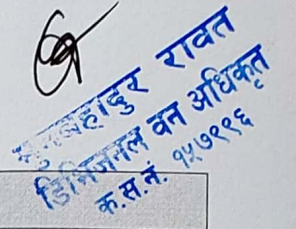 बहादुर रावत
डिभिजनल वन अधिकृत
क.स.नं. १५७९९६